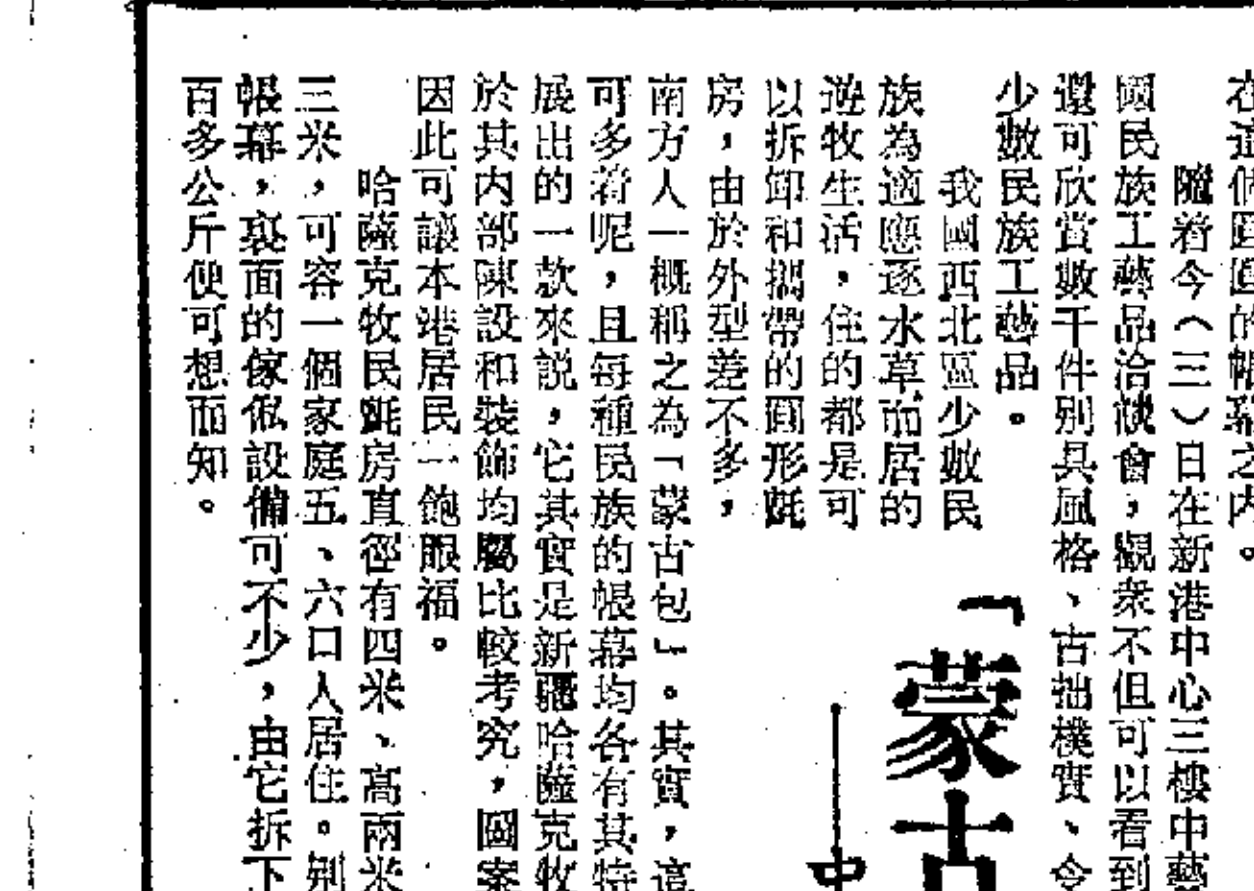 在這個圓圓的帳幕之内。
隨着今(三)日在新港中心三樓中藝
國民族工藝品洽談會,觀衆不但可以看到
還可欣賞數千件别具風格、古拙樸實、令
少數民族工藝品。
我國西北區少數民
族為適應逐水草而居的
遊牧生活,住的都是可
以拆卸和攜帶的圓形氈
房,由於外型差不多,
南方人一概稱之為「蒙古包」。其實,這
可多着呢,且每種民族的帳幕均各有其特
展出的一款來説,它其實是新疆哈薩克牧
於其内部陳設和裝飾均屬比較考究,圖案
因此可讓本港居民一飽眼福。
哈薩克牧民氈房直徑有四米、高兩米
三米,可容一個家庭五、六口人居住。别
帳幕,裏面的傢俬設備可不少,由它拆下
百多公斤便可想而知。
「蒙古
中